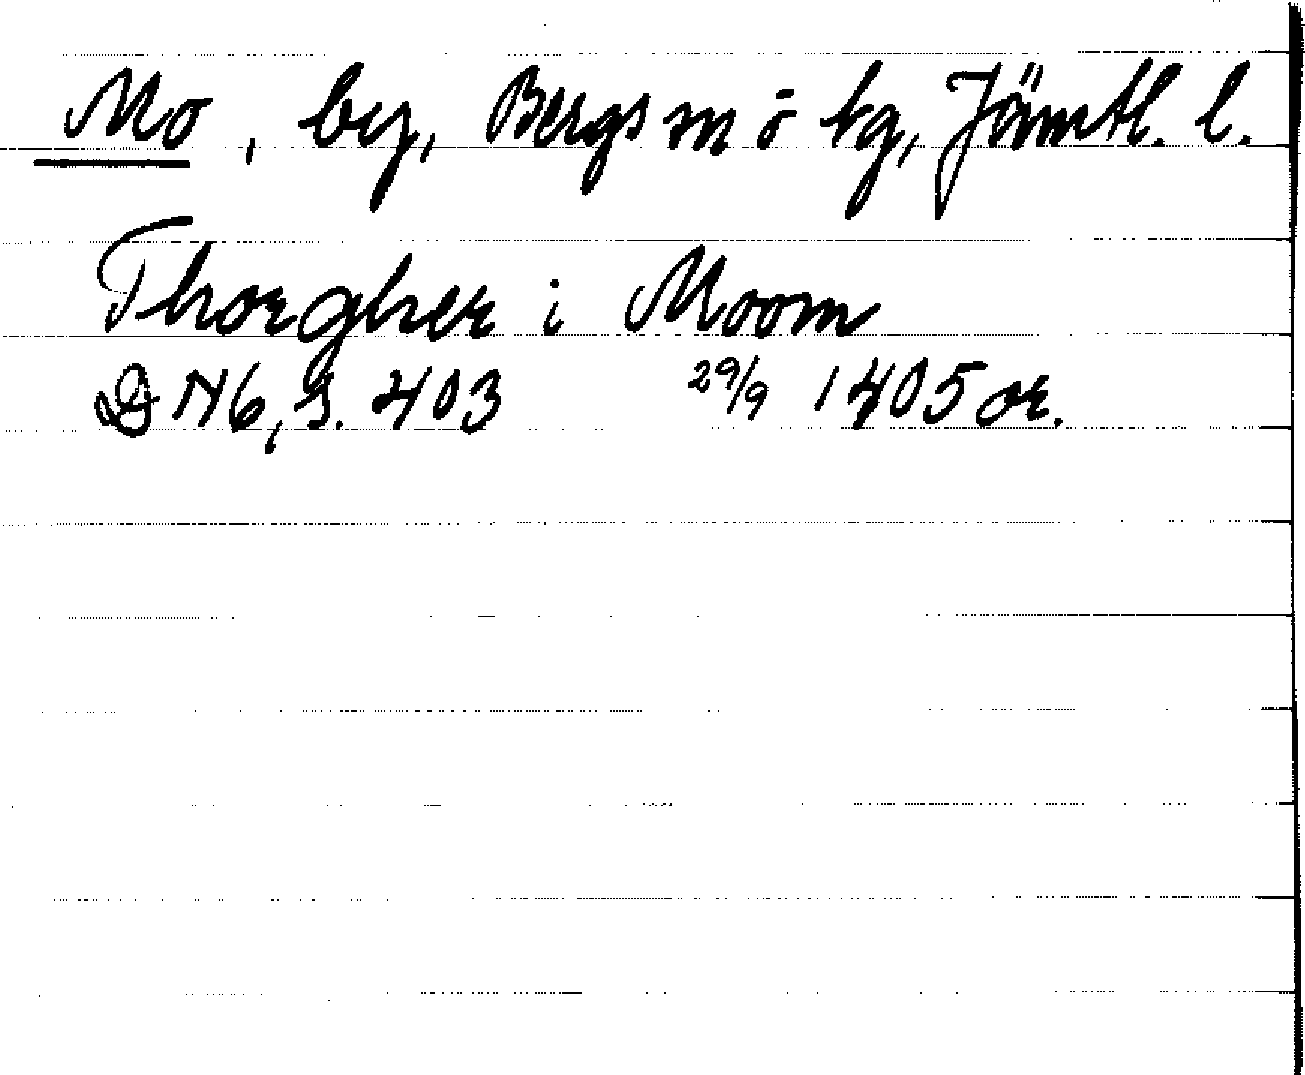 Mo, by, Bergs sn o tg, Jämtl. l.
Thorgher i Moom
DN6, S. 403 29/9 1405 or.